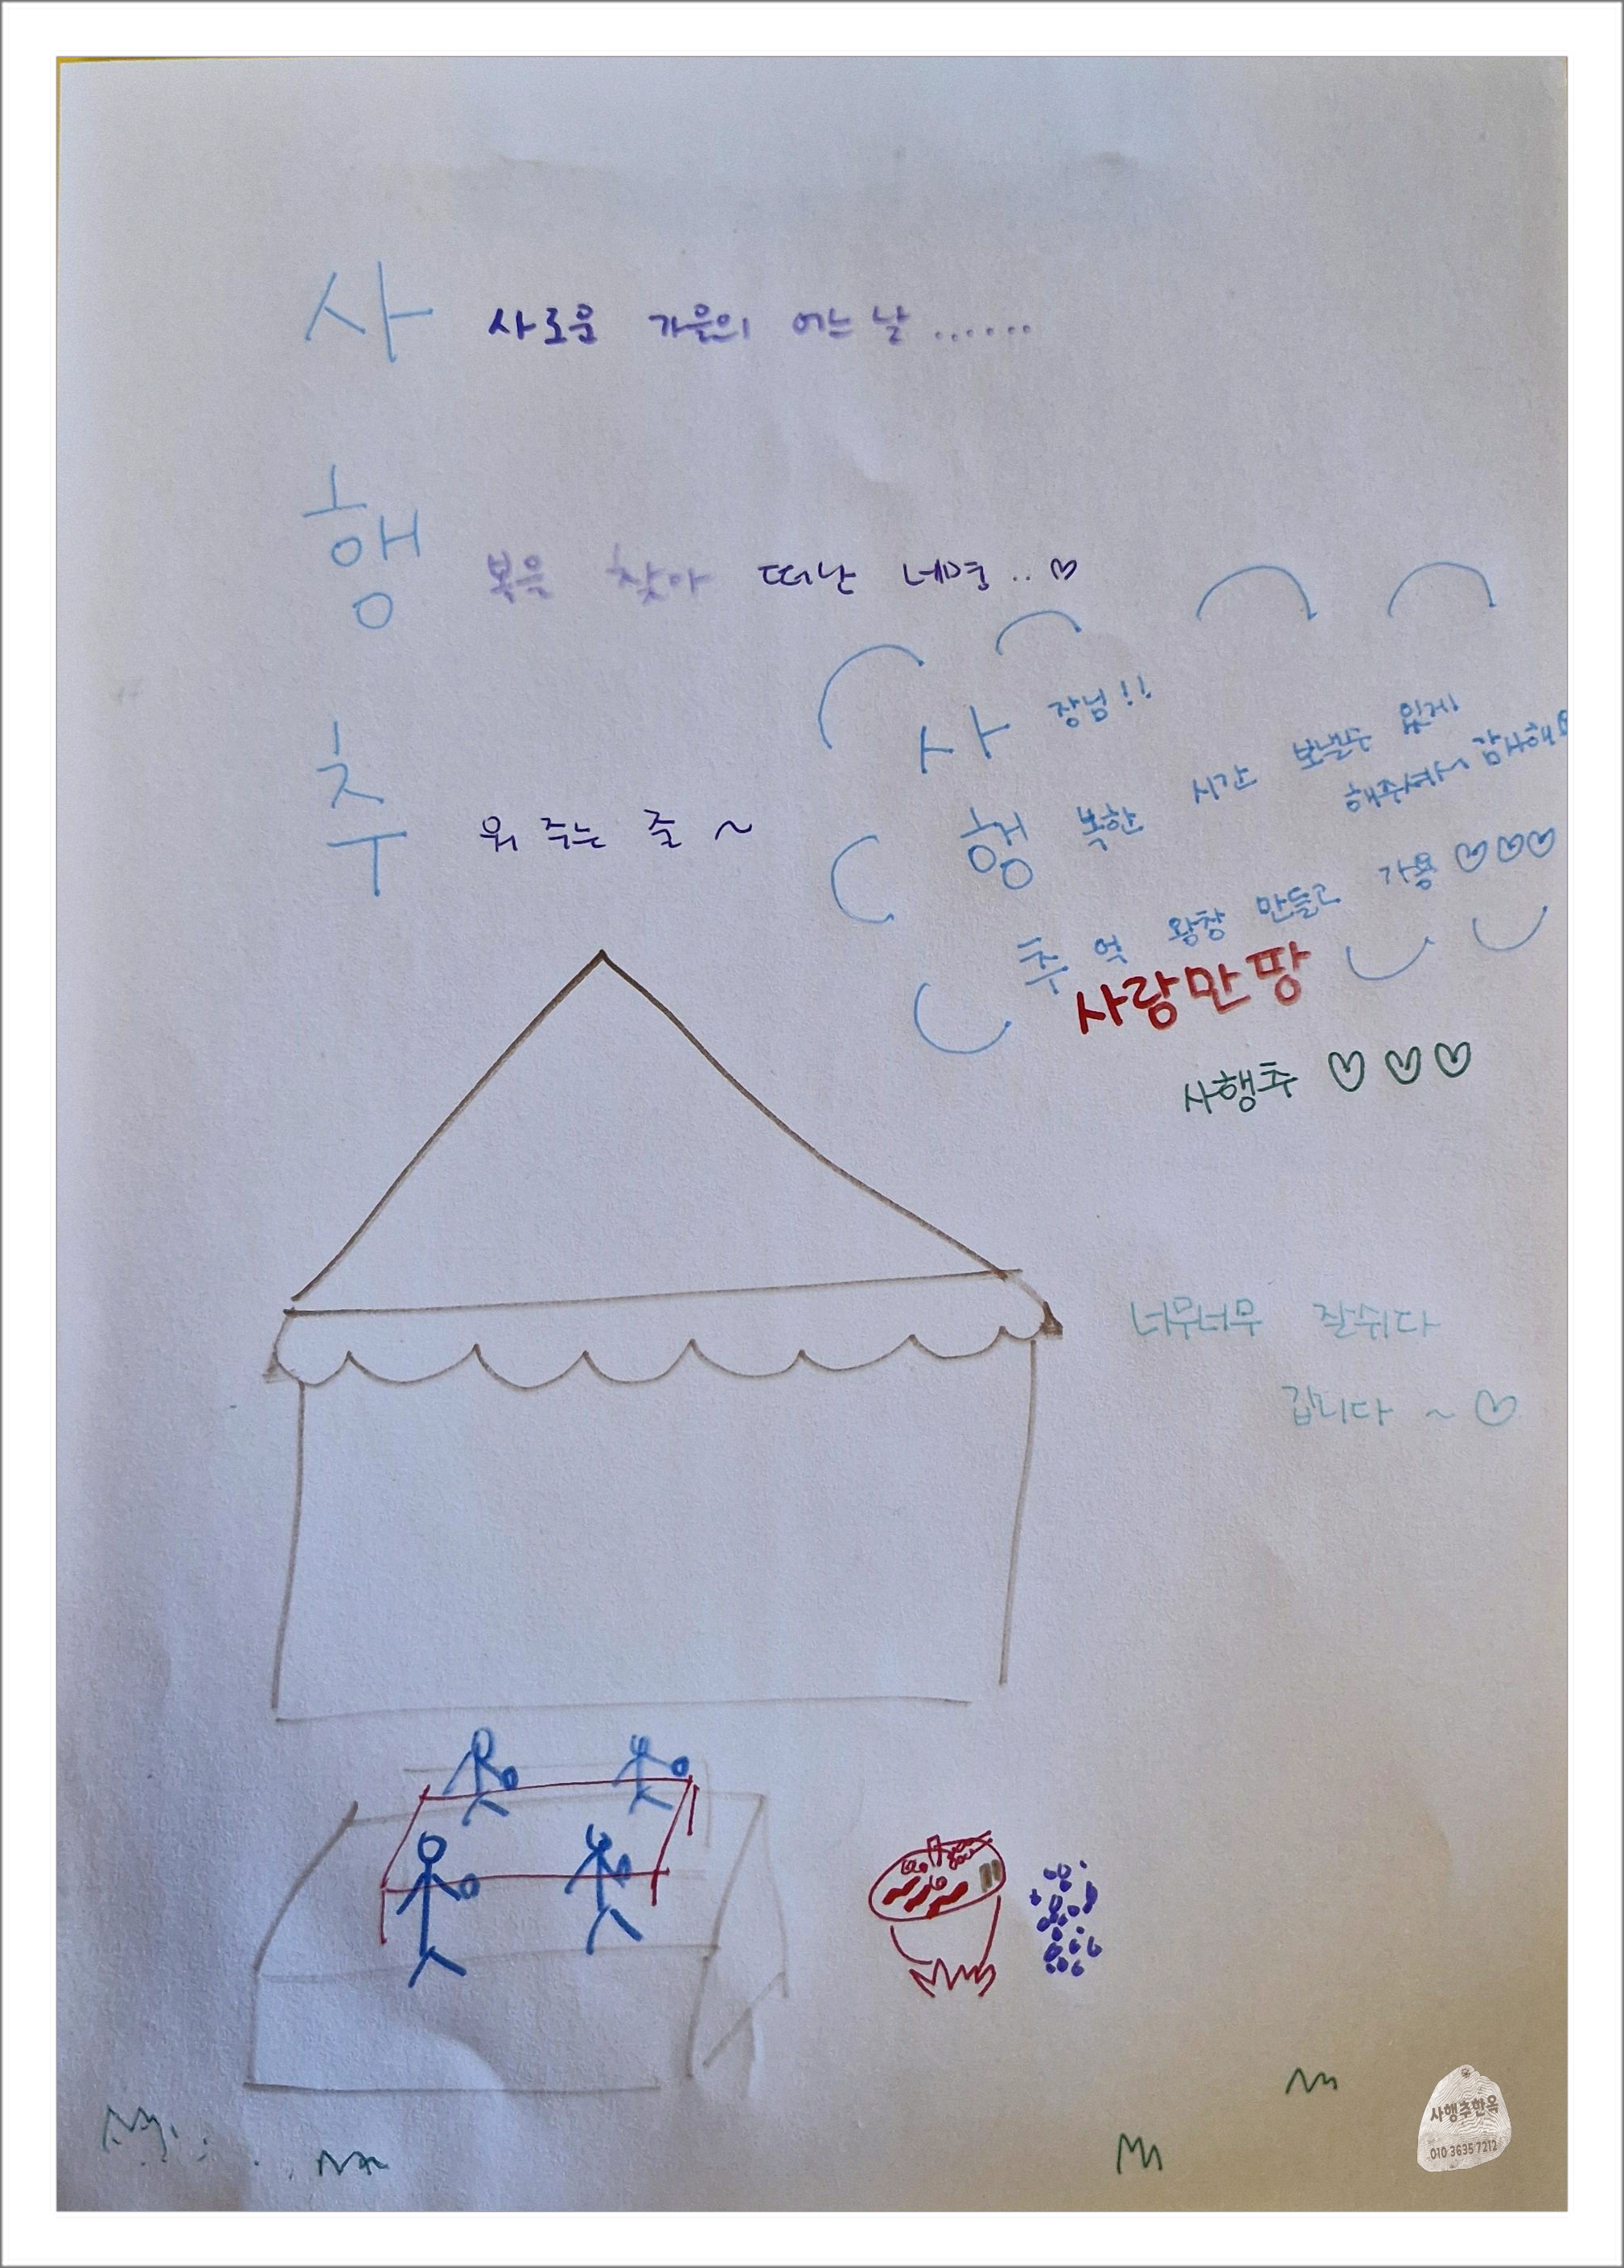 사 사로운 가을의 어느날......
행 복을 찾아 떠난 네명..♡
추 워 주는 줄~
사 장님!!
행 복한 시간 보낼수 있게
해주셔서~ 감사해용
추 억 왕창 만들고 가용♡♡♡
사랑만땅
사행추♡♡♡
너무너무 잘쉬다
갑니다~♡
사행추한옥
010 3635 7212